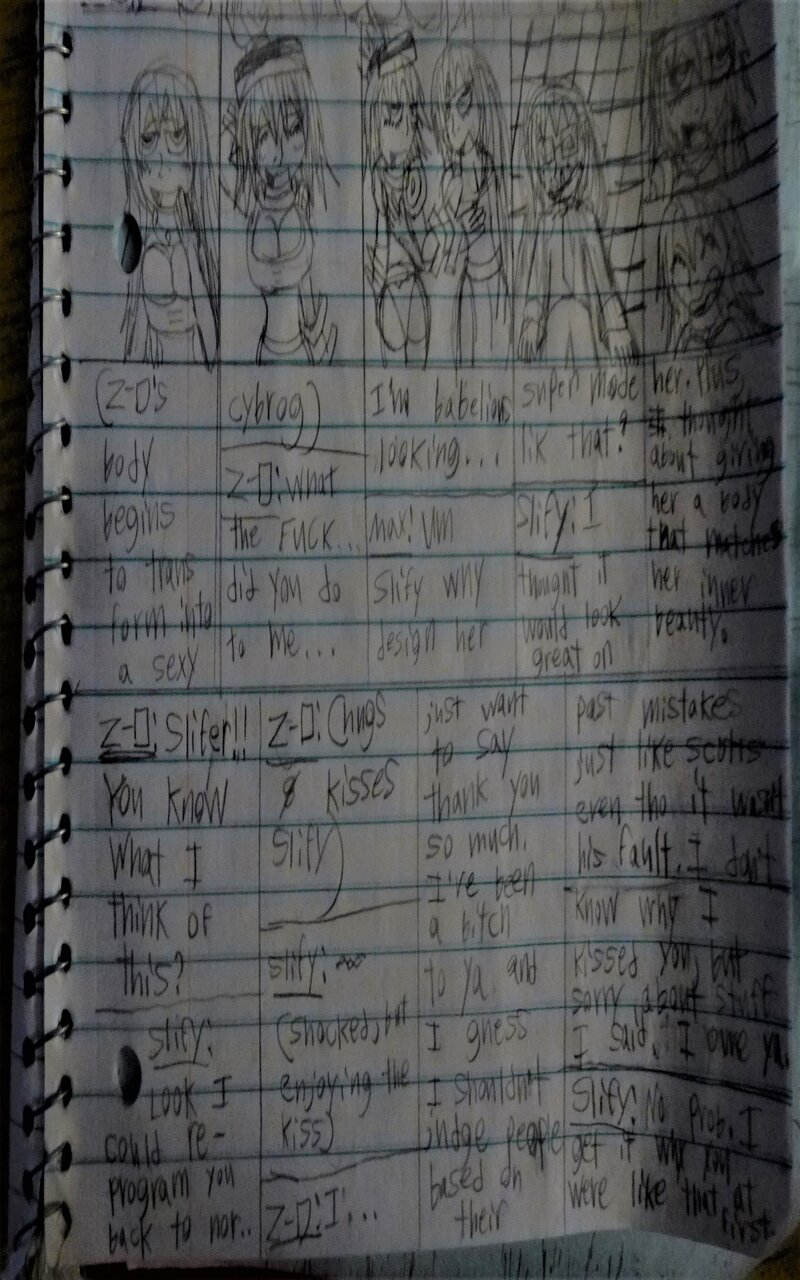 (Z-0's
body
begins
to trans
form into
a sexy
cybrog)
Z-0: What
the FUCK...
did you do
to me...
I'm babelions
looking...
Max: Um
Slify why
design her
super mode
lik that?
Slify: I
thought it
would look
great on
her. Plus,
I thought
about giving
her a body
that matches
her inner
beauty.
Z-0: Slifer!!
You know
What I
think of
this?
Slify:
Look I
could re-
program you
back to nor..
Z-0: (hugs
& kisses
Slify)
Slify: ~~
(shocked, but
enjoying the
kiss)
Z-0: I...
just want
to say
thank you
so much.
I've been
a bitch
to ya and
I guess
I shouldn't
judge people
based on
their
past mistakes
just like scotts
even tho it wasnt
his fault. I don't
know why I
kissed you, but
sorry about stuff
I said. I owe ya.
Slify: No prob. I
get it why you
were like that at
first.